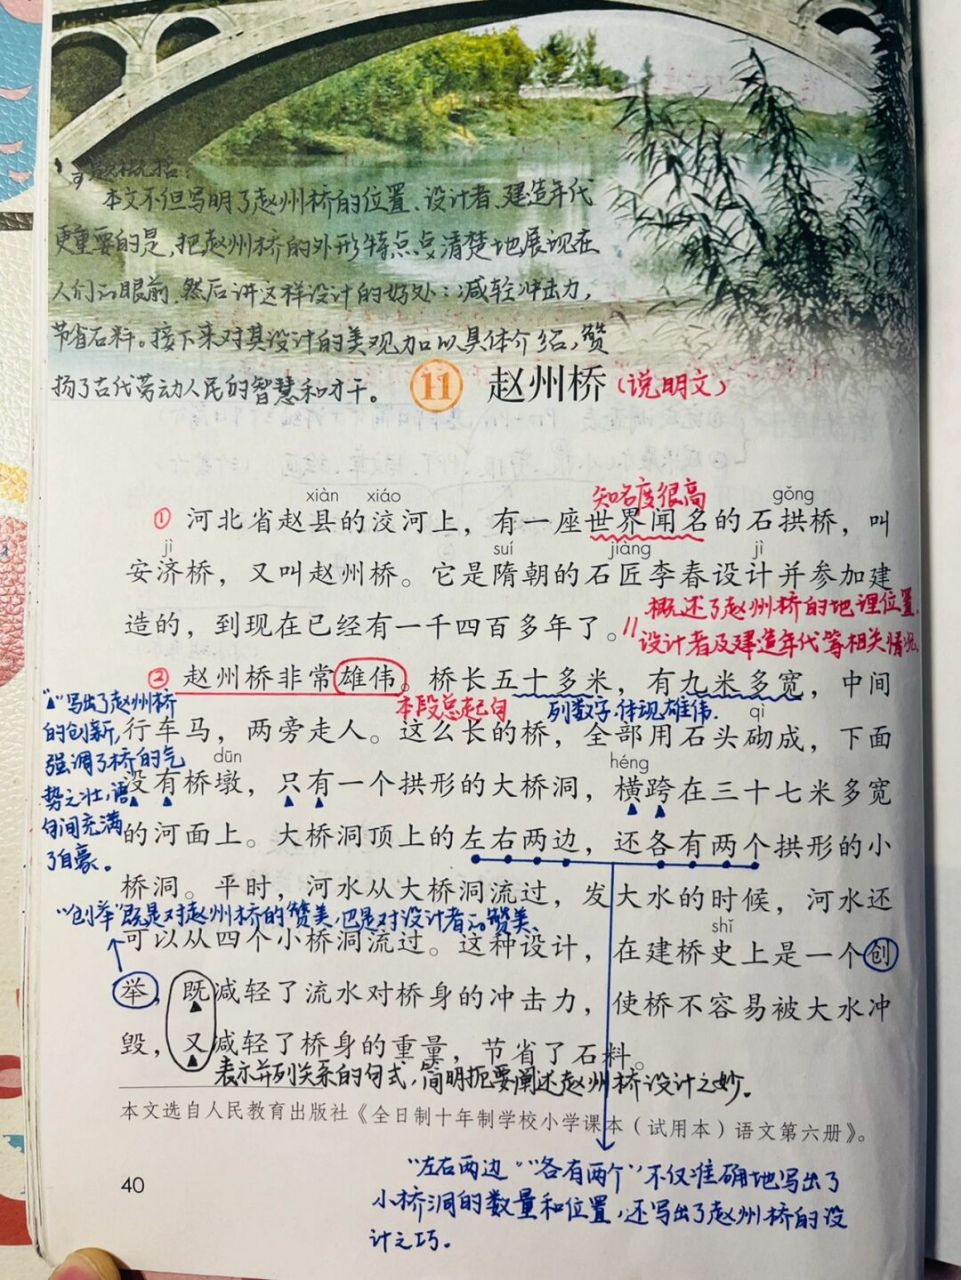 本文不但写明了赵州桥的位置、设计者、建造年代
更重要的是,把赵州桥的外形特点清楚地展现在
人们的眼前,然后讲这样设计的好处:减轻冲击力,
节省石料。接下来对其设计的美观加以具体介绍,赞
扬了古代劳动人民的智慧和才干。
11 赵州桥(说明文)
知名度很高
xiàn xiáo gǒng
① 河北省赵县的洨河上，有一座世界闻名的石拱桥，叫
jì suí jiàng jì
安济桥，又叫赵州桥。它是隋朝的石匠李春设计并参加建
造的，到现在已经有一千四百多年了。
概述了赵州桥的地理位置、
设计者及建造年代等相关情况。
② 赵州桥非常雄伟。桥长五十多米，有九米多宽，中间
本段总起句
列数字,体现雄伟.
qì
行车马，两旁走人。这么长的桥，全部用石头砌成，下面
dūn héng
没有桥墩，只有一个拱形的大桥洞，横跨在三十七米多宽
的河面上。大桥洞顶上的左右两边，还各有两个拱形的小
桥洞。平时，河水从大桥洞流过，发大水的时候，河水还
shǐ
可以从四个小桥洞流过。这种设计，在建桥史上是一个创
举，既减轻了流水对桥身的冲击力，使桥不容易被大水冲
毁，又减轻了桥身的重量，节省了石料。
"▲"写出了赵州桥
的创新,
强调了桥的气
势之壮,语
句间充满
了自豪。
"创举"既是对赵州桥的赞美,也是对设计者的赞美.
表示并列关系的句式,简明扼要阐述赵州桥设计之妙.
本文选自人民教育出版社《全日制十年制学校小学课本（试用本）语文第六册》。
40
"左右两边""各有两个"不仅准确地写出了
小桥洞的数量和位置,还写出了赵州桥的设
计之巧.